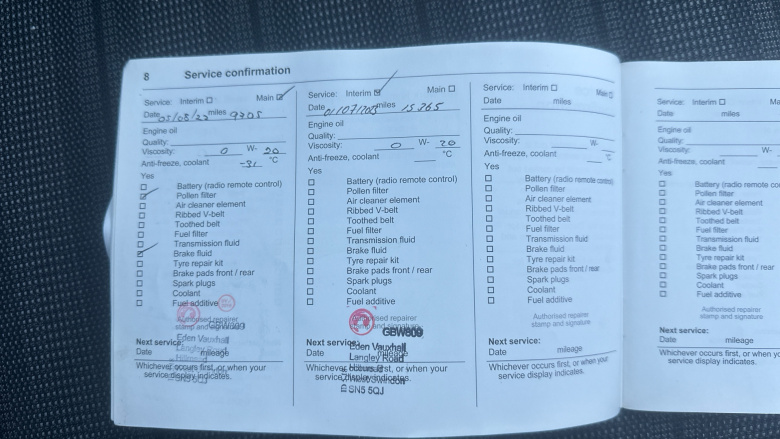 8 Service confirmation
Service: Interim ☐ Main ☑
Date miles 9705
Engine oil
Quality:
Viscosity: 0 W- 20
Anti-freeze, coolant -31 °C
Yes
☐ Battery (radio remote control)
☑ Pollen filter
☐ Air cleaner element
☐ Ribbed V-belt
☐ Toothed belt
☐ Fuel filter
☐ Transmission fluid
☑ Brake fluid
☐ Tyre repair kit
☐ Brake pads front / rear
☐ Spark plugs
☐ Coolant
☐ Fuel additive
Authorised repairer
stamp and signature
Eden Vauxhall
Langley Road
Next service:
Date mileage
Whichever occurs first, or when your
service display indicates.
Service: Interim ☑ Main ☐
Date miles 15265
Engine oil
Quality:
Viscosity: 0 W- 20
Anti-freeze, coolant °C
Yes
☐ Battery (radio remote control)
☐ Pollen filter
☐ Air cleaner element
☐ Ribbed V-belt
☐ Toothed belt
☐ Fuel filter
☐ Transmission fluid
☐ Brake fluid
☐ Tyre repair kit
☐ Brake pads front / rear
☐ Spark plugs
☐ Coolant
☐ Fuel additive
Authorised repairer
stamp and signature
GBW809
Eden Vauxhall
Langley Road
Swindon
SN5 5QJ
Next service:
Date mileage
Whichever occurs first, or when your
service display indicates.
Service: Interim ☐ Main ☐
Date miles
Engine oil
Quality:
Viscosity: W-
Anti-freeze, coolant °C
Yes
☐ Battery (radio remote control)
☐ Pollen filter
☐ Air cleaner element
☐ Ribbed V-belt
☐ Toothed belt
☐ Fuel filter
☐ Transmission fluid
☐ Brake fluid
☐ Tyre repair kit
☐ Brake pads front / rear
☐ Spark plugs
☐ Coolant
☐ Fuel additive
Authorised repairer
stamp and signature
Next service:
Date mileage
Whichever occurs first, or when your
service display indicates.
Service: Interim ☐ Ma
Date miles
Engine oil
Quality:
Viscosity: W-
Anti-freeze, coolant
Yes
☐ Battery (radio remote co
☐ Pollen filter
☐ Air cleaner element
☐ Ribbed V-belt
☐ Toothed belt
☐ Fuel filter
☐ Transmission fluid
☐ Brake fluid
☐ Tyre repair kit
☐ Brake pads front / rear
☐ Spark plugs
☐ Coolant
☐ Fuel additive
Authorised repairer
stamp and signature
Next service:
Date mileage
Whichever occurs first, or when
service display indicates.